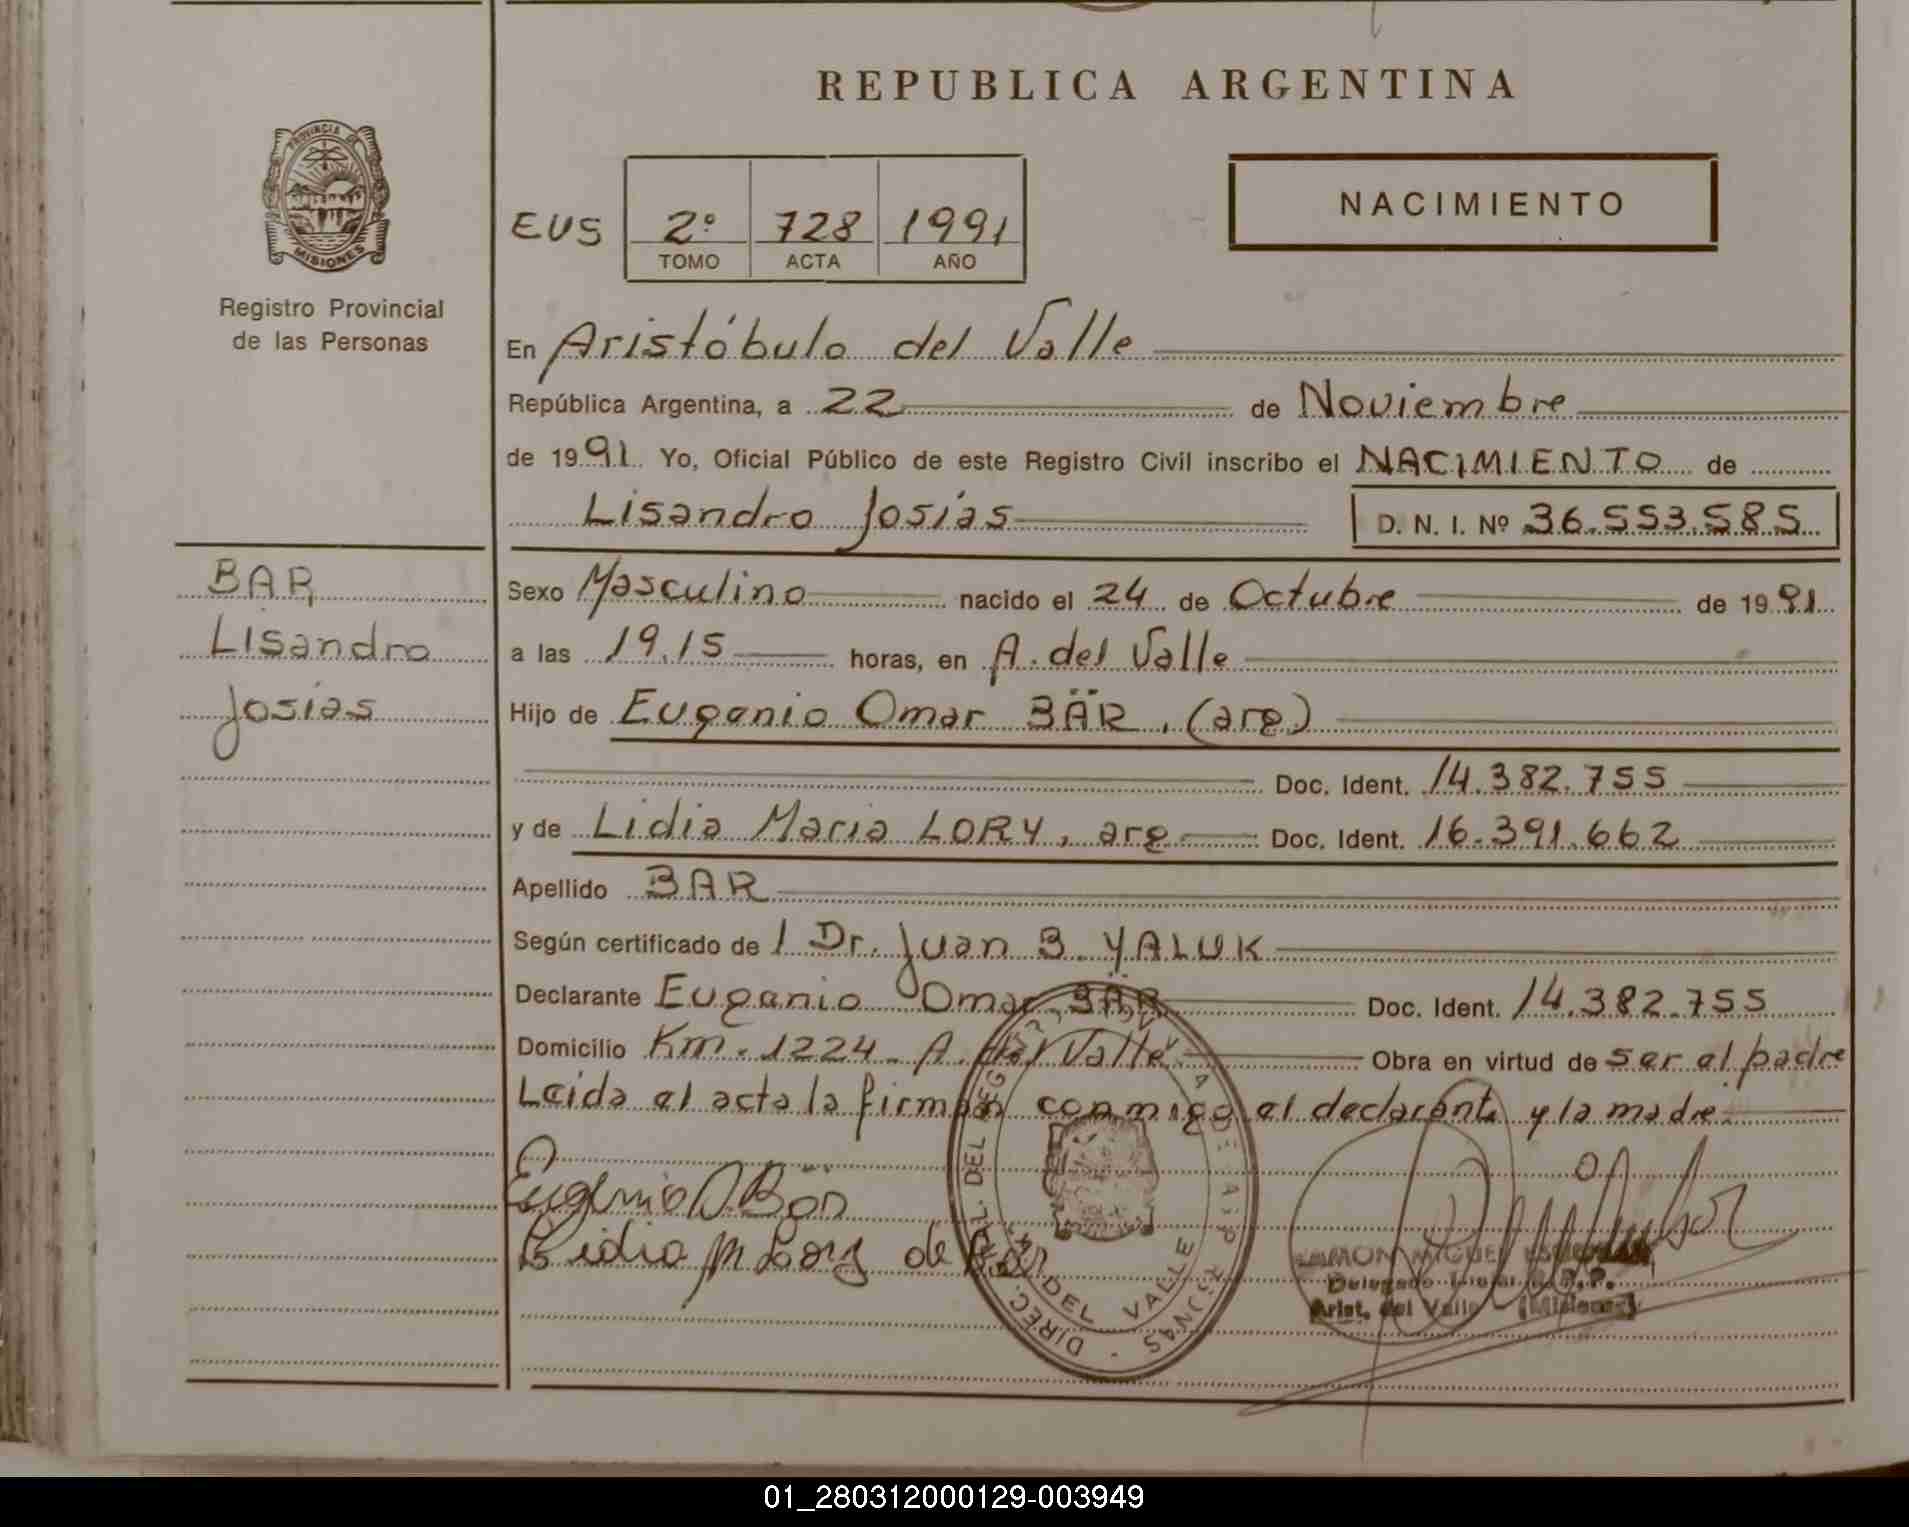 REPUBLICA ARGENTINA
PROVINCIA DE
MISIONES
Registro Provincial
de las Personas
EUS
2º 728 1991
TOMO ACTA AÑO
NACIMIENTO
En Aristóbulo del Valle
República Argentina, a 22 de Noviembre
de 1991. Yo, Oficial Público de este Registro Civil inscribo el NACIMIENTO de
Lisandro Josías
D. N. I. Nº 36.553.585
BAR
Lisandro
Josías
Sexo Masculino nacido el 24 de Octubre de 1991
a las 19.15 horas, en A. del Valle
Hijo de Eugenio Omar BÄR, (arg)
Doc. Ident. 14.382.755
y de Lidia Maria LORY, arg Doc. Ident. 16.391.662
Apellido BAR
Según certificado de l Dr. Juan B. YALUK
Declarante Eugenio Omar BÄR Doc. Ident. 14.382.755
Domicilio Km. 1224 A. del Valle Obra en virtud de ser el padre
Leida el acta la firman conmigo el declarante y la madre
Eugenio O. Bär
Lidia M Lory de Bär
DIREC. DEL
DEL VALLE
MIGUEL
Delegado
Arist. del Valle (Misiones)
01_280312000129-003949